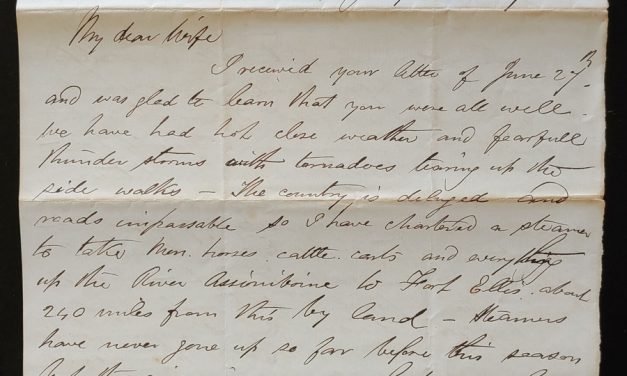 My dear Wife
I received your letter of June 27th
and was glad to learn that you were all well.
We have had hot close weather and fearfull
thunder storms with tornadoes tearing up the
side walks – The country is deluged and
roads impassable so I have chartered a steamer
to take Men. horses. cattle. carts and everything
up the River Assiniboine to Fort Ellis. about
240 miles from this by land – Steamers
have never gone up so far before this season